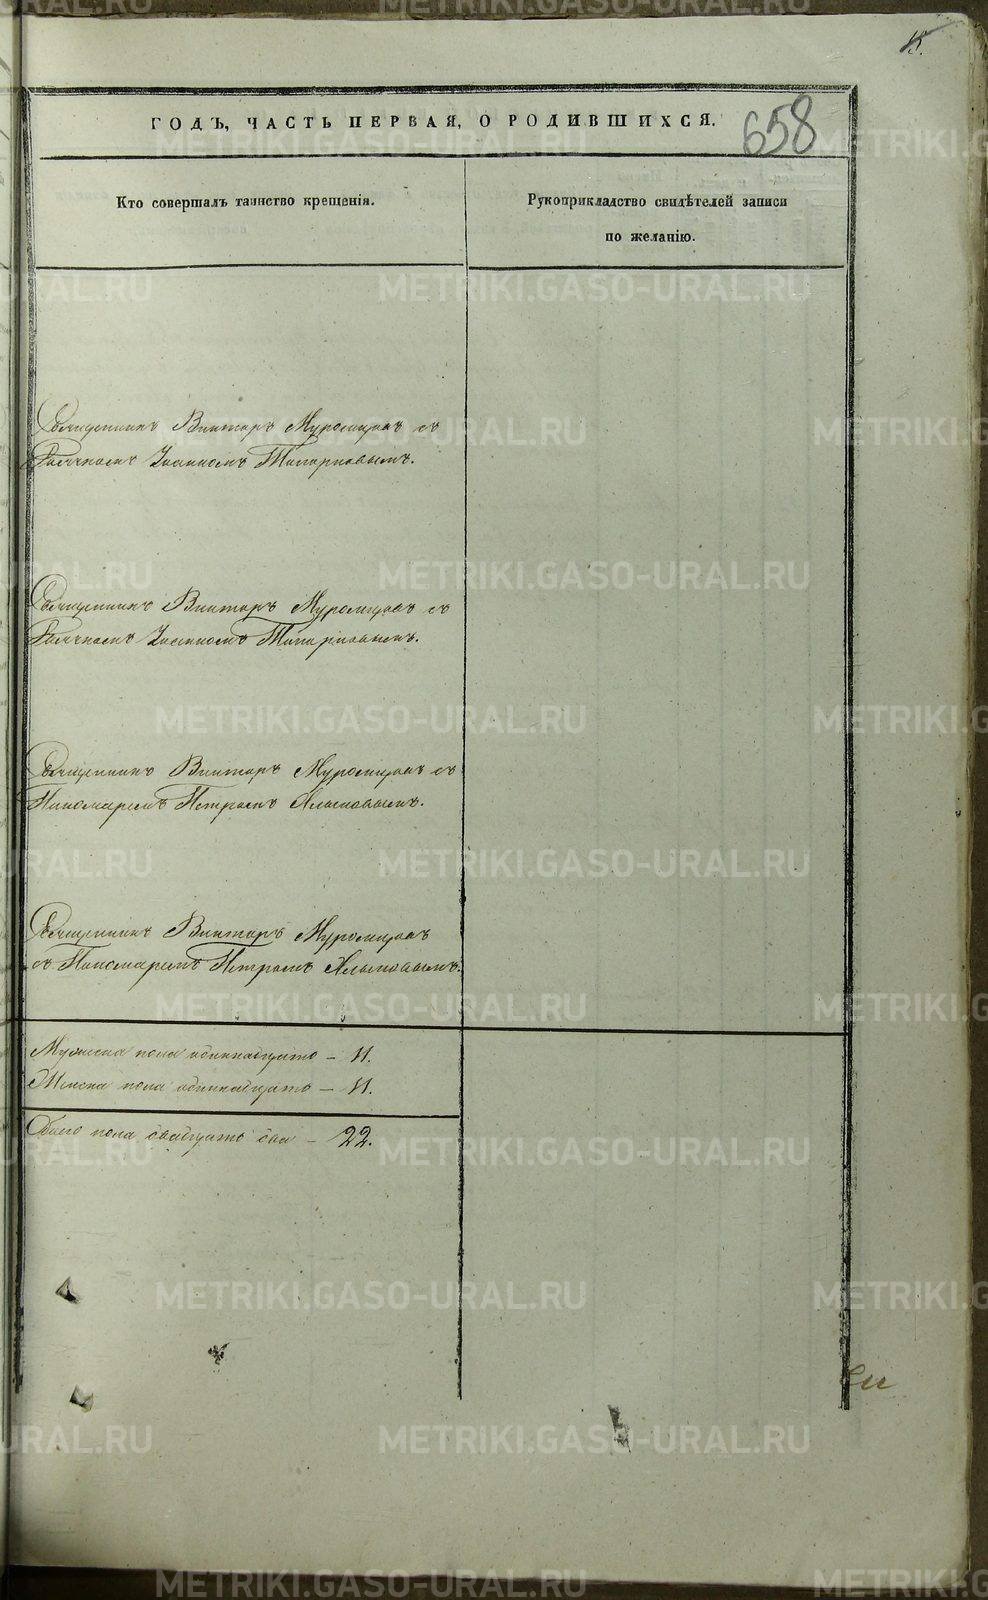 15.
658
ГОДЪ, ЧАСТЬ ПЕРВАЯ, О РОДИВШИХСЯ.
Кто совершалъ таинство крещенія.
Рукоприкладство свидѣтелей записи
по желанію.
Священникъ Викторъ Муромцовъ съ
Дьячкомъ Іоанномъ Топорковымъ.
Священникъ Викторъ Муромцовъ съ
Дьячкомъ Іоанномъ Топорковымъ.
Священникъ Викторъ Муромцовъ съ
Пономаремъ Петромъ
Священникъ Викторъ Муромцовъ
съ Пономаремъ Петромъ
Мужска пола одиннадцать – 11.
Женска пола одиннадцать – 11.
Обоего пола двадцать два – 22.
METRIKI.GASO-URAL.RU